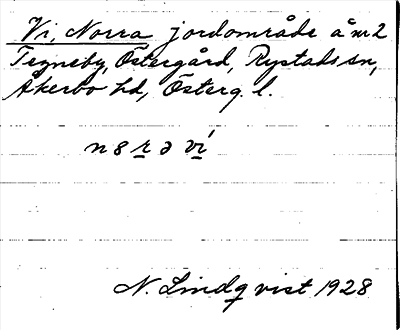 Vi, Norra jordområde å nr 2
Tegneby, Östergård, Rystads sn,
Åkerbo hd, Österg. l.
n8rə ví
N. Lindqvist 1928